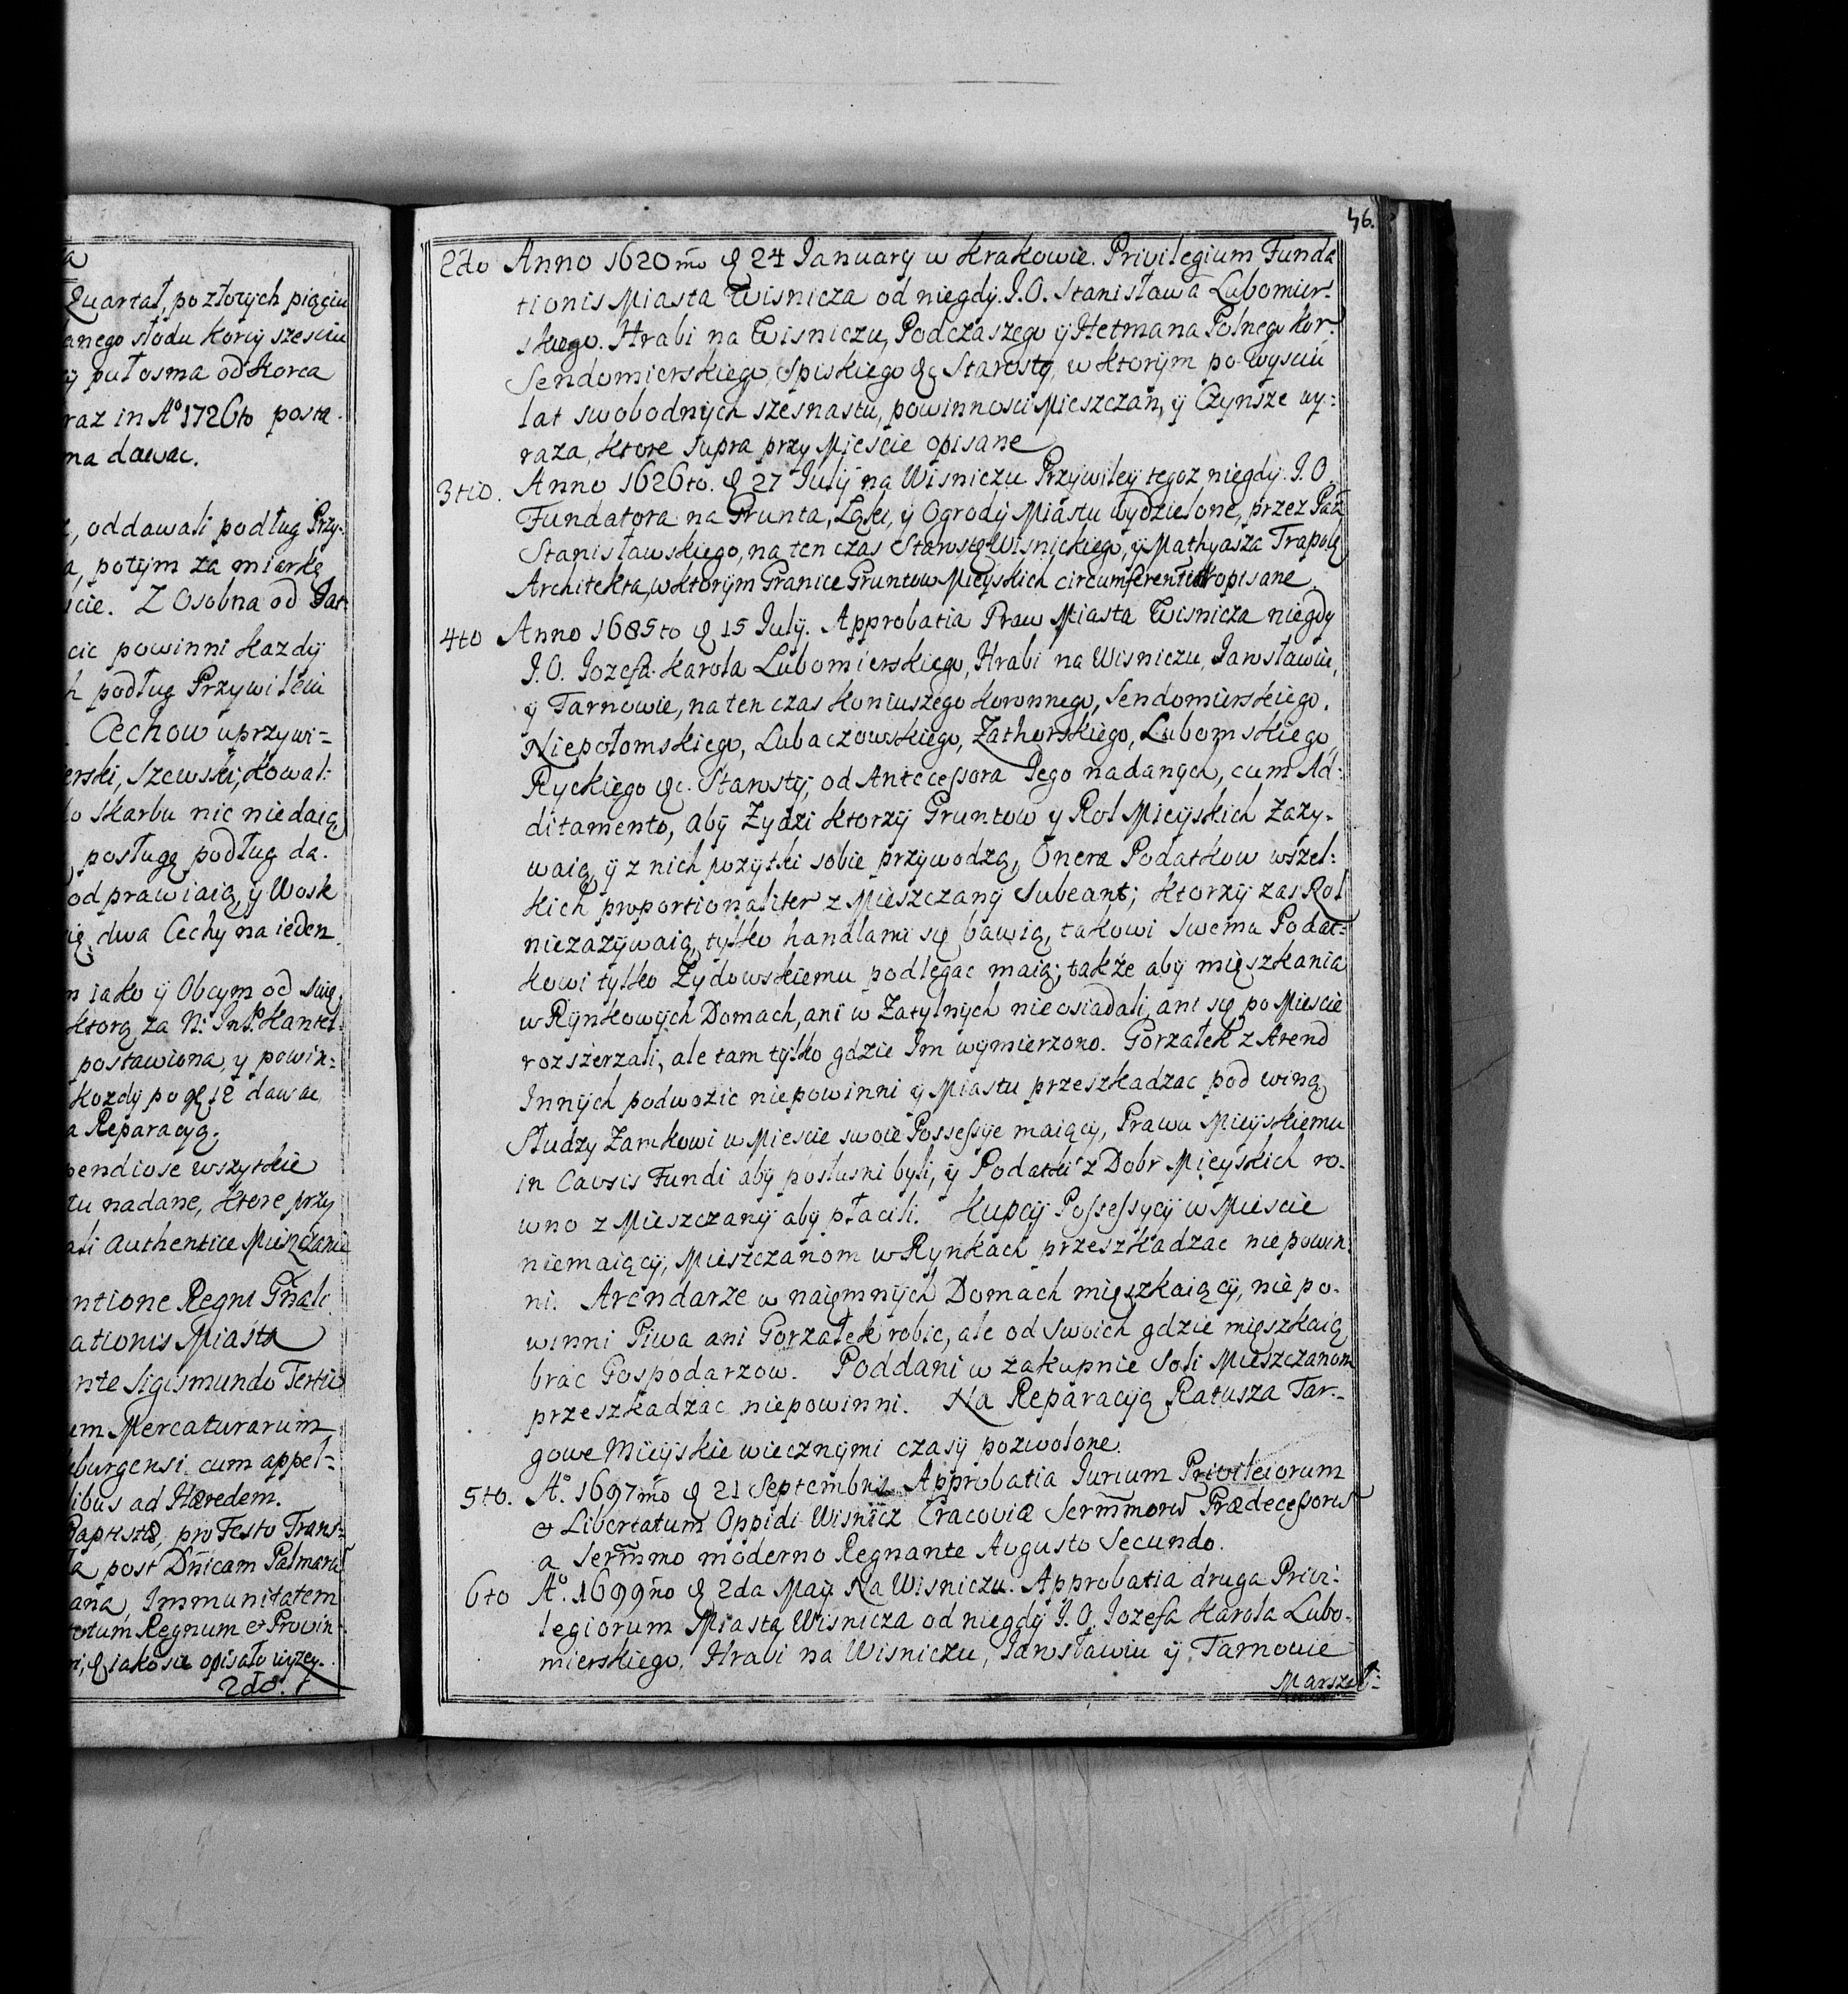 a
Quartał, po złotych pięciu
anego słodu Korcy szesciu
y pułosma od Korca
raz in Aº 1726to posta.
ma dawac.
, oddawali podług Przy-
a, potym za miarkę
scie. Z Osobna od Jat-
cic powinni kazdy
h podług Przywileiu
Cechow uprzywi=
erski, Szewski, Kowal:
o Skarbu nic niedaią
posługę podług da.
odprawiaią, y Wosk
ię dwa Cechy na ieden
m iako y Obcym od
ktorą za N:
postawiona, y powin:
kozdy po 12 dawac
a Reparacyą.
pendiose wszytkie
tu nadane, ktore przy
ali Authentice Mieszczanie
ntione Regni Gñali
ationis Miasta
nte Sigismundo Tertio
um Mercaturarum
burgensi cum appel=
libus ad Hæredem.
Baptistæ, pro Festo Trans-
la post Dñicam Palmarũ
ana, Immunitatem
totum Regnum et Provin-
iako sie opisało wyzey.
2do.
46.
2do Anno 1620mo d 24 January w Krakowie. Privilegium Funda
tionis Miasta Wisnicza od niegdy. J.O. Stanisława Lubomier-
skiego. Hrabi na Wisniczu, Podczaszego y Hetmana Polnego Kor.
Sendomierskiego, Spiskiego &c Starosty, w ktorym po wysciu
lat swobodnych szesnastu, powinnosci Mieszczan, y Czynsze wy=
raza, ktore supra przy Miescie opisane
3tio. Anno 1626to. d 27 July na Wisniczu Przywiley tegoz niegdy J.O.
Fundatora na Grunta, Łąki, y Ogrody Miastu wydzielone, przez Pañ
Stanisławskiego, na ten czas Starostę Wisnickiego, y Mathyasza Trapolę
Architekta, w ktorym Granice Gruntow Mieyskich circumferentialr opisane.
4to Anno 1685to d 15 July. Approbatia Praw Miasta Wisnicza niegdy
J.O. Jozefa Karola Lubomierskiego, Hrabi na Wisniczu, Jarosławiu,
y Tarnowie, na ten czas Koniuszego Koronnego, Sendomierskiego,
Niepołomskiego, Lubaczowskiego, Zathorskiego, Lubomskiego,
Ryckiego &c. Starosty, od Antecessora Jego nadanych, cum Ad=
ditamento, aby Zydzi ktorzy Gruntow y Rol Mieyskich zazy-
waią, y z nich pozytki sobie przywodzą, Onera Podatkow wszel:
kich proportionaliter z Mieszczany Subeant; ktorzy zas Rol
niezazywaią, tylko handlami się bawią, takowi swemu Podat=
kowi tylko Zydowskiemu podlegac maią; także aby mięszkania
w Rynkowych Domach, ani w Zatylnych nie osiadali, ani się po Miescie
rozszerzali, ale tam tylko gdzie Im wymierzono. Gorzałek z Arend
Innych podwozic niepowinni y Miastu przeszkadzac pod winą
Słudzy Zamkowi w Miescie swoie Possessye maiący, Prawu Mieyskiemu
in Causis Fundi aby posłusni byli, y Podatki z Dobr Mieyskich ro-
wno z Mieszczany aby płacili. Kupcy Possessycy w Miescie
niemaiący, Mieszczanom w Rynkach przeszkadzac niepowin:
ni. Arendarze w naiemnych Domach mięszkaiący, nie po-
winni Piwa ani Gorzałek robic, ale od swoich gdzie mięszkaią
brac Gospodarzow. Poddani w zakupnie Soli Mieszczanom
przeszkadzac niepowinni. Na Reparacyą Ratusza Tar-
gowe Mieyskie wiecznymi czasy pozwolone.
5to. Aº. 1697mo d 21 Septembris Approbatia Jurium Privileiorum
& Libertatum Oppidi Wisnicz Cracoviæ Sermmorũ Prædecessorũ
a Sermmo moderno Regnante Augusto Secundo.
6to Aº. 1699no d 2da May Na Wisniczu. Approbatia druga Privi:
legiorum Miasta Wisnicza od niegdy J.O. Jozefa Karola Lubo-
mierskiego, Hrabi na Wisniczu, Jarosławiu y Tarnowie
Marszał: